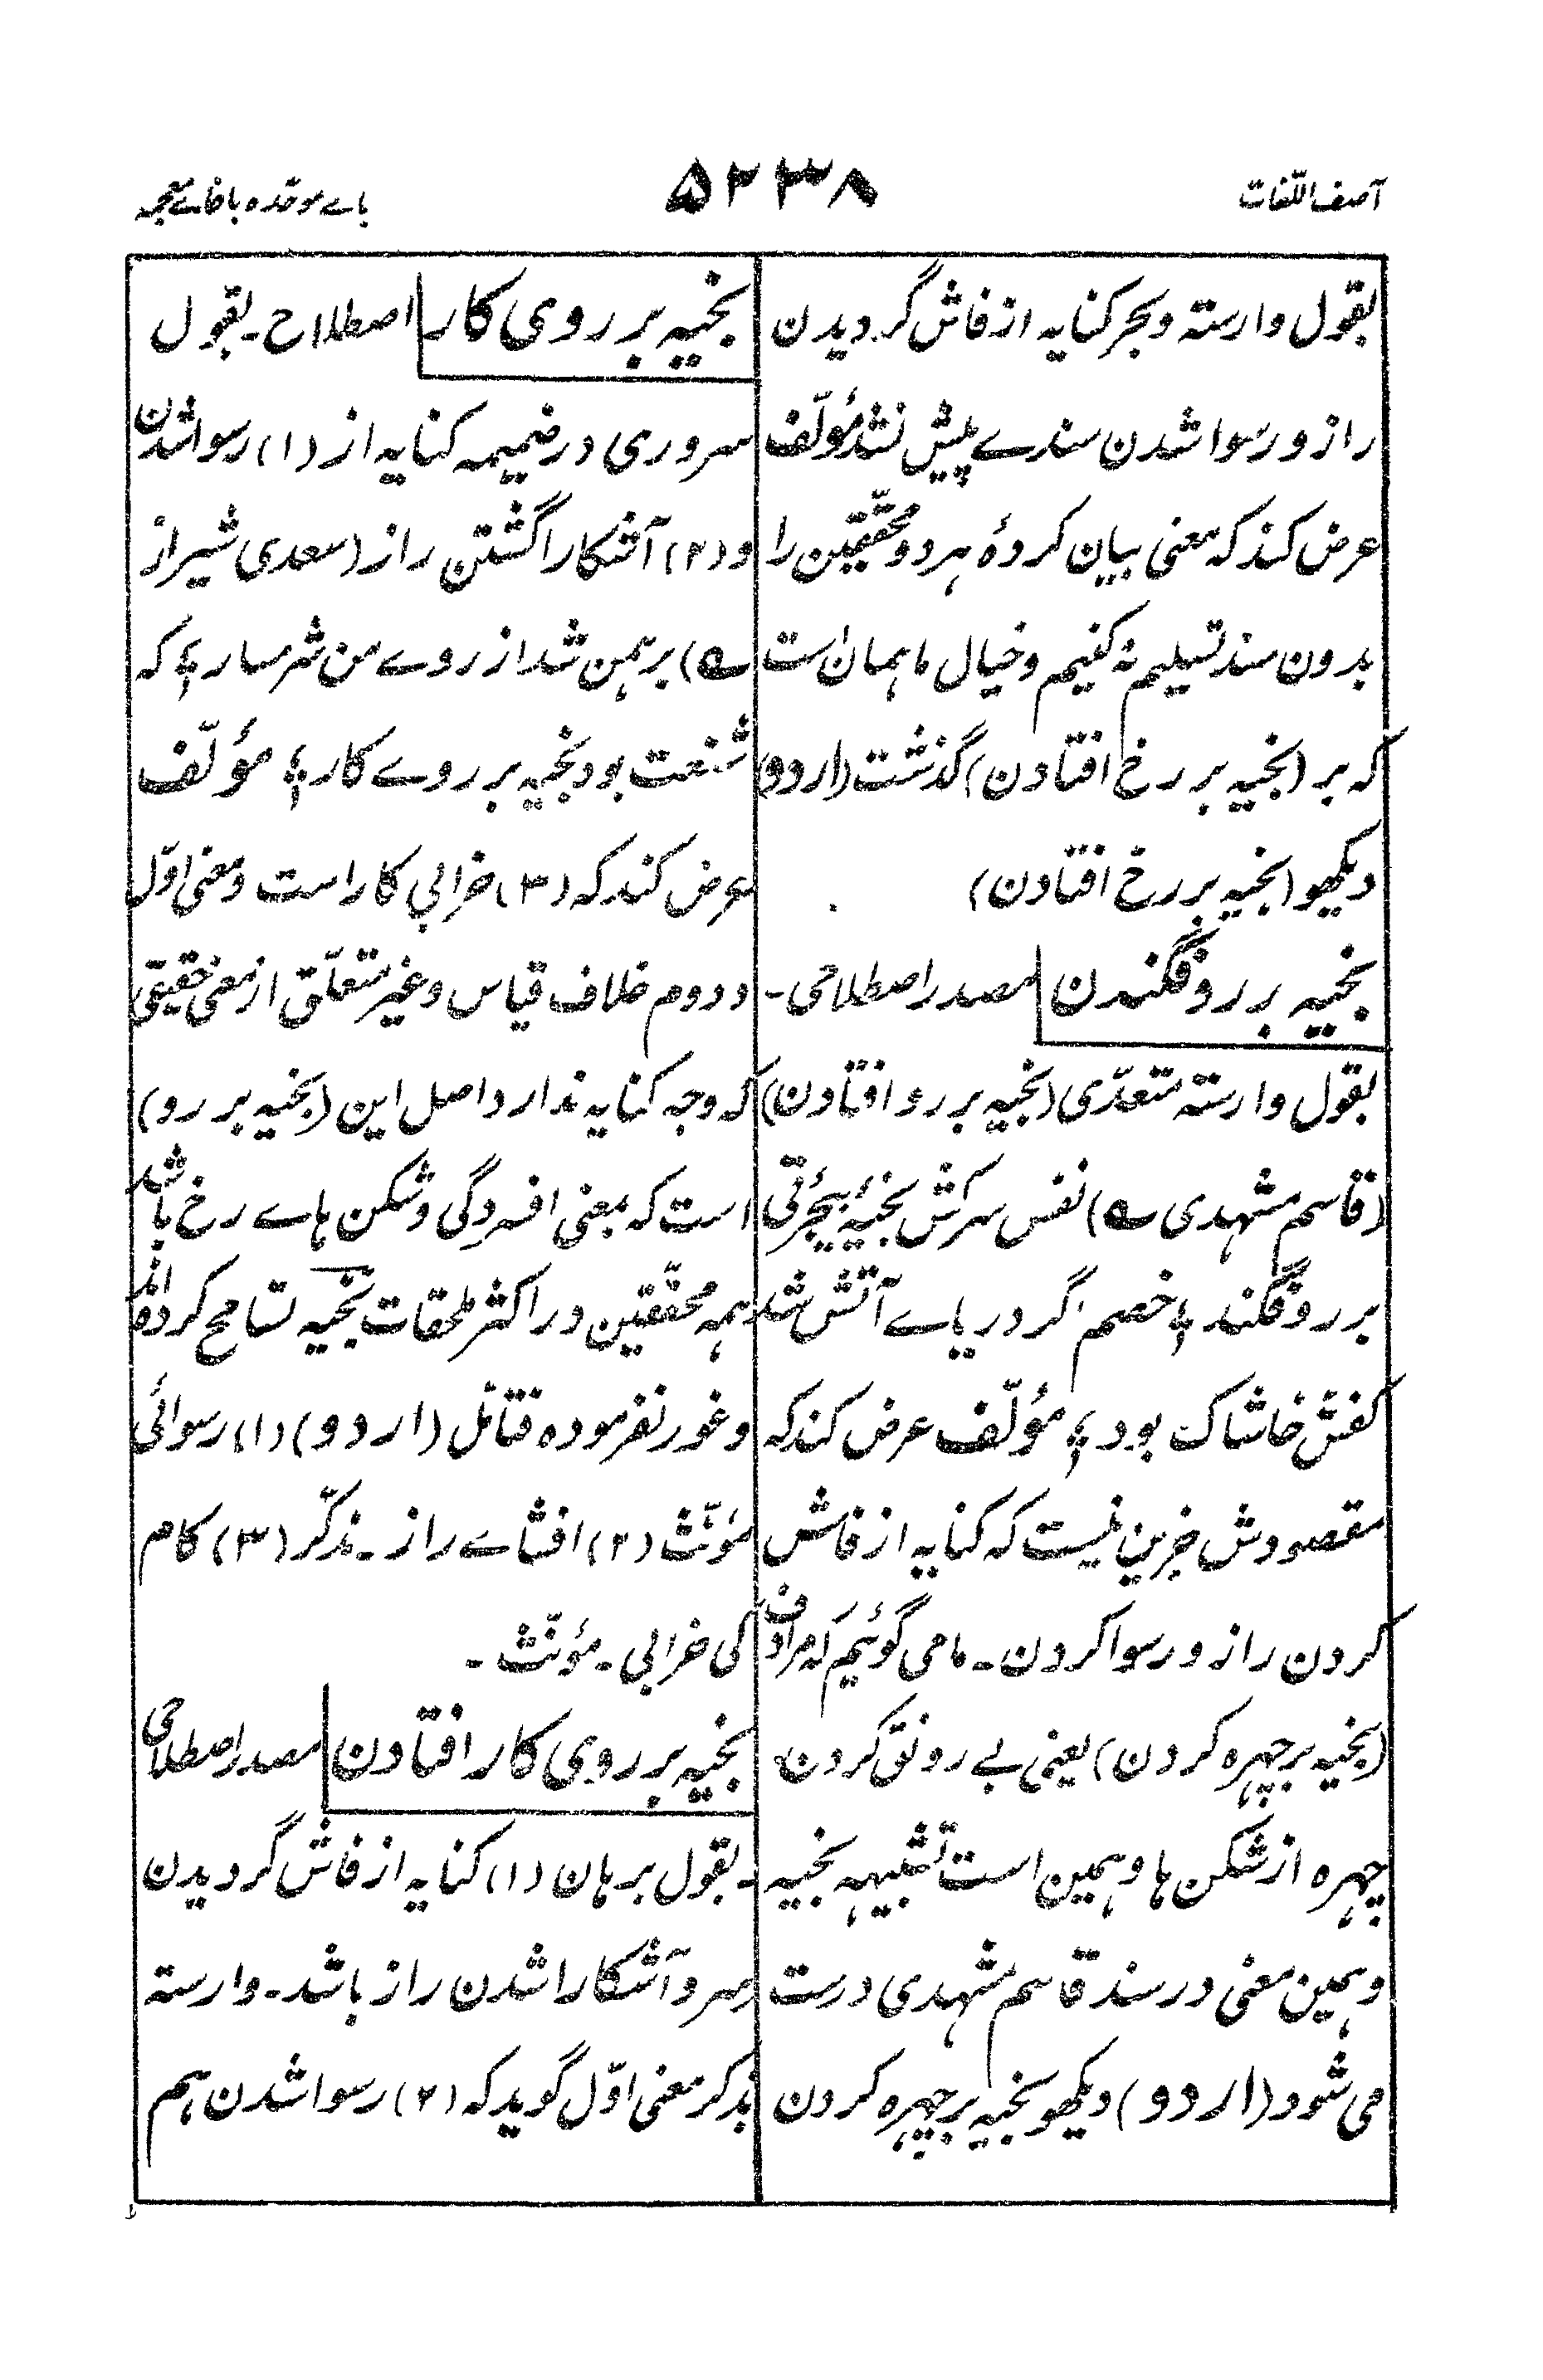 آصف اللّغات
۵۲۳۸
باے موحّدہ باخاے معجمہ
بقول وارستہ و بحر کنایہ از فاش گردیدن
راز و رسوا شدن سندے پیش نشد مؤلّف
عرض کند کہ معنی بیان کردۂ ہر دو محقّقین را
بدون سند تسلیم نہ کنیم و خیال ما ہمان ست
کہ بر (بخیہ بر رخ افتادن) گذشت (اردو)
دیکھو (بخیہ بر رخ افتادن)
بخیہ بر رو فگندن مصدر اصطلاحی۔
بقول وارستہ متعدّی (بخیہ بر رو افتادن)
(قاسم مشہدی ؎) نفس سرکش بخیۂ بیجرئتی
بر رو فگند ؛ خصم گر دریاے آتش شد
کفش خاشاک بود ؛ مؤلّف عرض کند کہ
مقصودش جزین نیست کہ کنایہ از فاش
کردن راز و رسوا کردن۔ ما می گوئیم کہ مرادف
(بخیہ بر چہرہ کردن) یعنی بے رونق کردن
چہرہ از شکن ہا و ہمین است تشبیہہ بخیہ
و ہمین معنی در سند قاسم مشہدی درست
می شود (اردو) دیکھو بخیہ بر چہرہ کردن
بخیہ بر روی کار اصطلاح۔ بقول
سروری در ضمیمہ کنایہ از (۱) رسوا شدن
و (۲) آشکارا گشتن راز (سعدی شیراز
؎) برہمن شد از روے من شرمسار ؛ کہ
شنعت بود بخیہ بر روے کار ؛ مؤلّف
عرض کند کہ (۳) خرابی کار است و معنی اوّل
و دوم خلاف قیاس و غیر متعلّق از معنی حقیقی
کہ وجہ کنایہ ندارد اصل این (بخیہ بر رو)
است کہ بمعنی افسردگی و شکن ہاے رخ باشد
ہمہ محقّقین در اکثر ملحقات بخیہ تسامح کردہ اند
و غور نفرمودہ فتاٴمل (اردو) (۱) رسوائی
مؤنّث (۲) افشاے راز۔ مذکّر (۳) کام
کی خرابی۔ مؤنّث۔
بخیہ بر روی کار افتادن مصدر اصطلاحی
۔ بقول برہان (۱) کنایہ از فاش گردیدن
سر و آشکارا شدن راز باشد۔ وارستہ
بذکر معنی اوّل گوید کہ (۲) رسوا شدن ہم